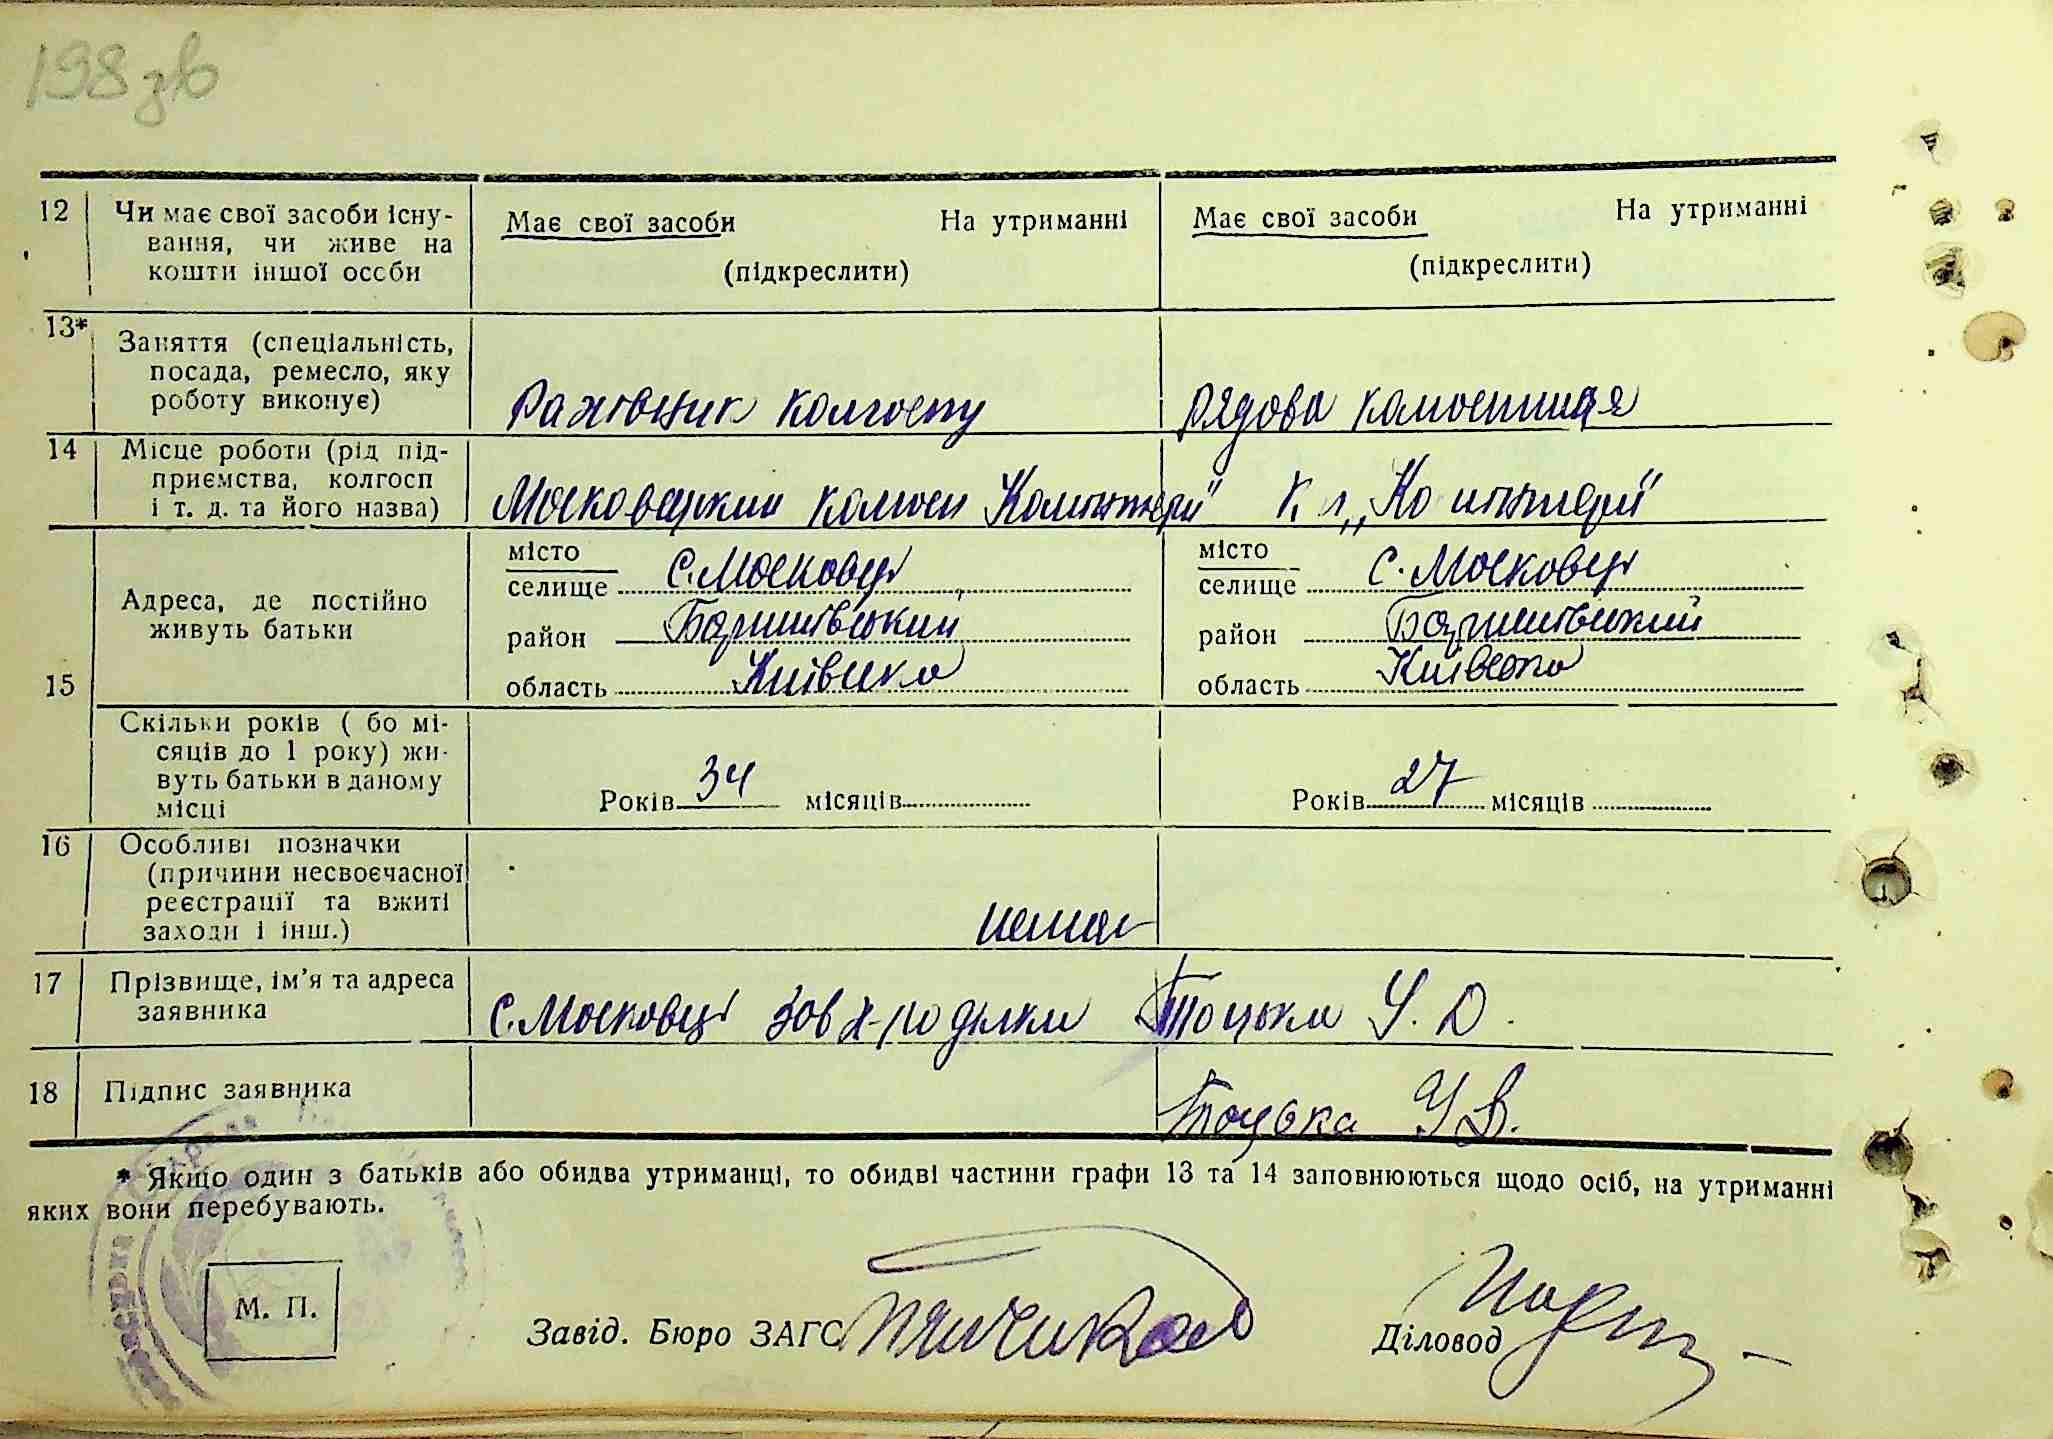 198 зв
12 Чи має свої засоби існу-
вання, чи живе на
кошти іншої особи
Має свої засоби На утриманні
(підкреслити)
Має свої засоби На утриманні
(підкреслити)
13* Заняття (спеціальність,
посада, ремесло, яку
роботу виконує)
колгоспу
рядова
14 Місце роботи (рід під-
приємства, колгосп
і т. д. та його назва)
15 Адреса, де постійно
живуть батьки
місто
селище с. Московці
район
область Київська
місто
селище с. Московці
район
область Київська
Скільки років ( бо мі-
сяців до 1 року) жи-
вуть батьки в даному
місці
Років 34 місяців
Років 27 місяців
16 Особливі позначки
(причини несвоєчасної
реєстрації та вжиті
заходи і інш.)
немає
17 Прізвище, ім'я та адреса
заявника
с. Московці Тоцька У. Д.
18 Підпис заявника
Тоцька У Д.
* Якщо один з батьків або обидва утриманці, то обидві частини графи 13 та 14 заповнюються щодо осіб, на утриманні
яких вони перебувають.
М. П.
Завід. Бюро ЗАГС
Діловод